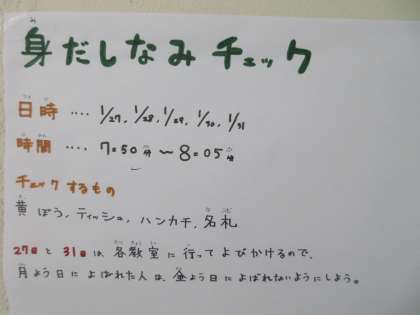 身だしなみチェック
日時 ‥‥ 1/27, 1/28, 1/29, 1/30, 1/31
時間 ‥‥ 7:50分 〜 8:05分
チェックするもの
黄ぼう、ティッシュ、ハンカチ、名札
27日と31日は各教室に行ってよびかけるので、
月よう日によばれた人は、金よう日によばれないようにしよう。